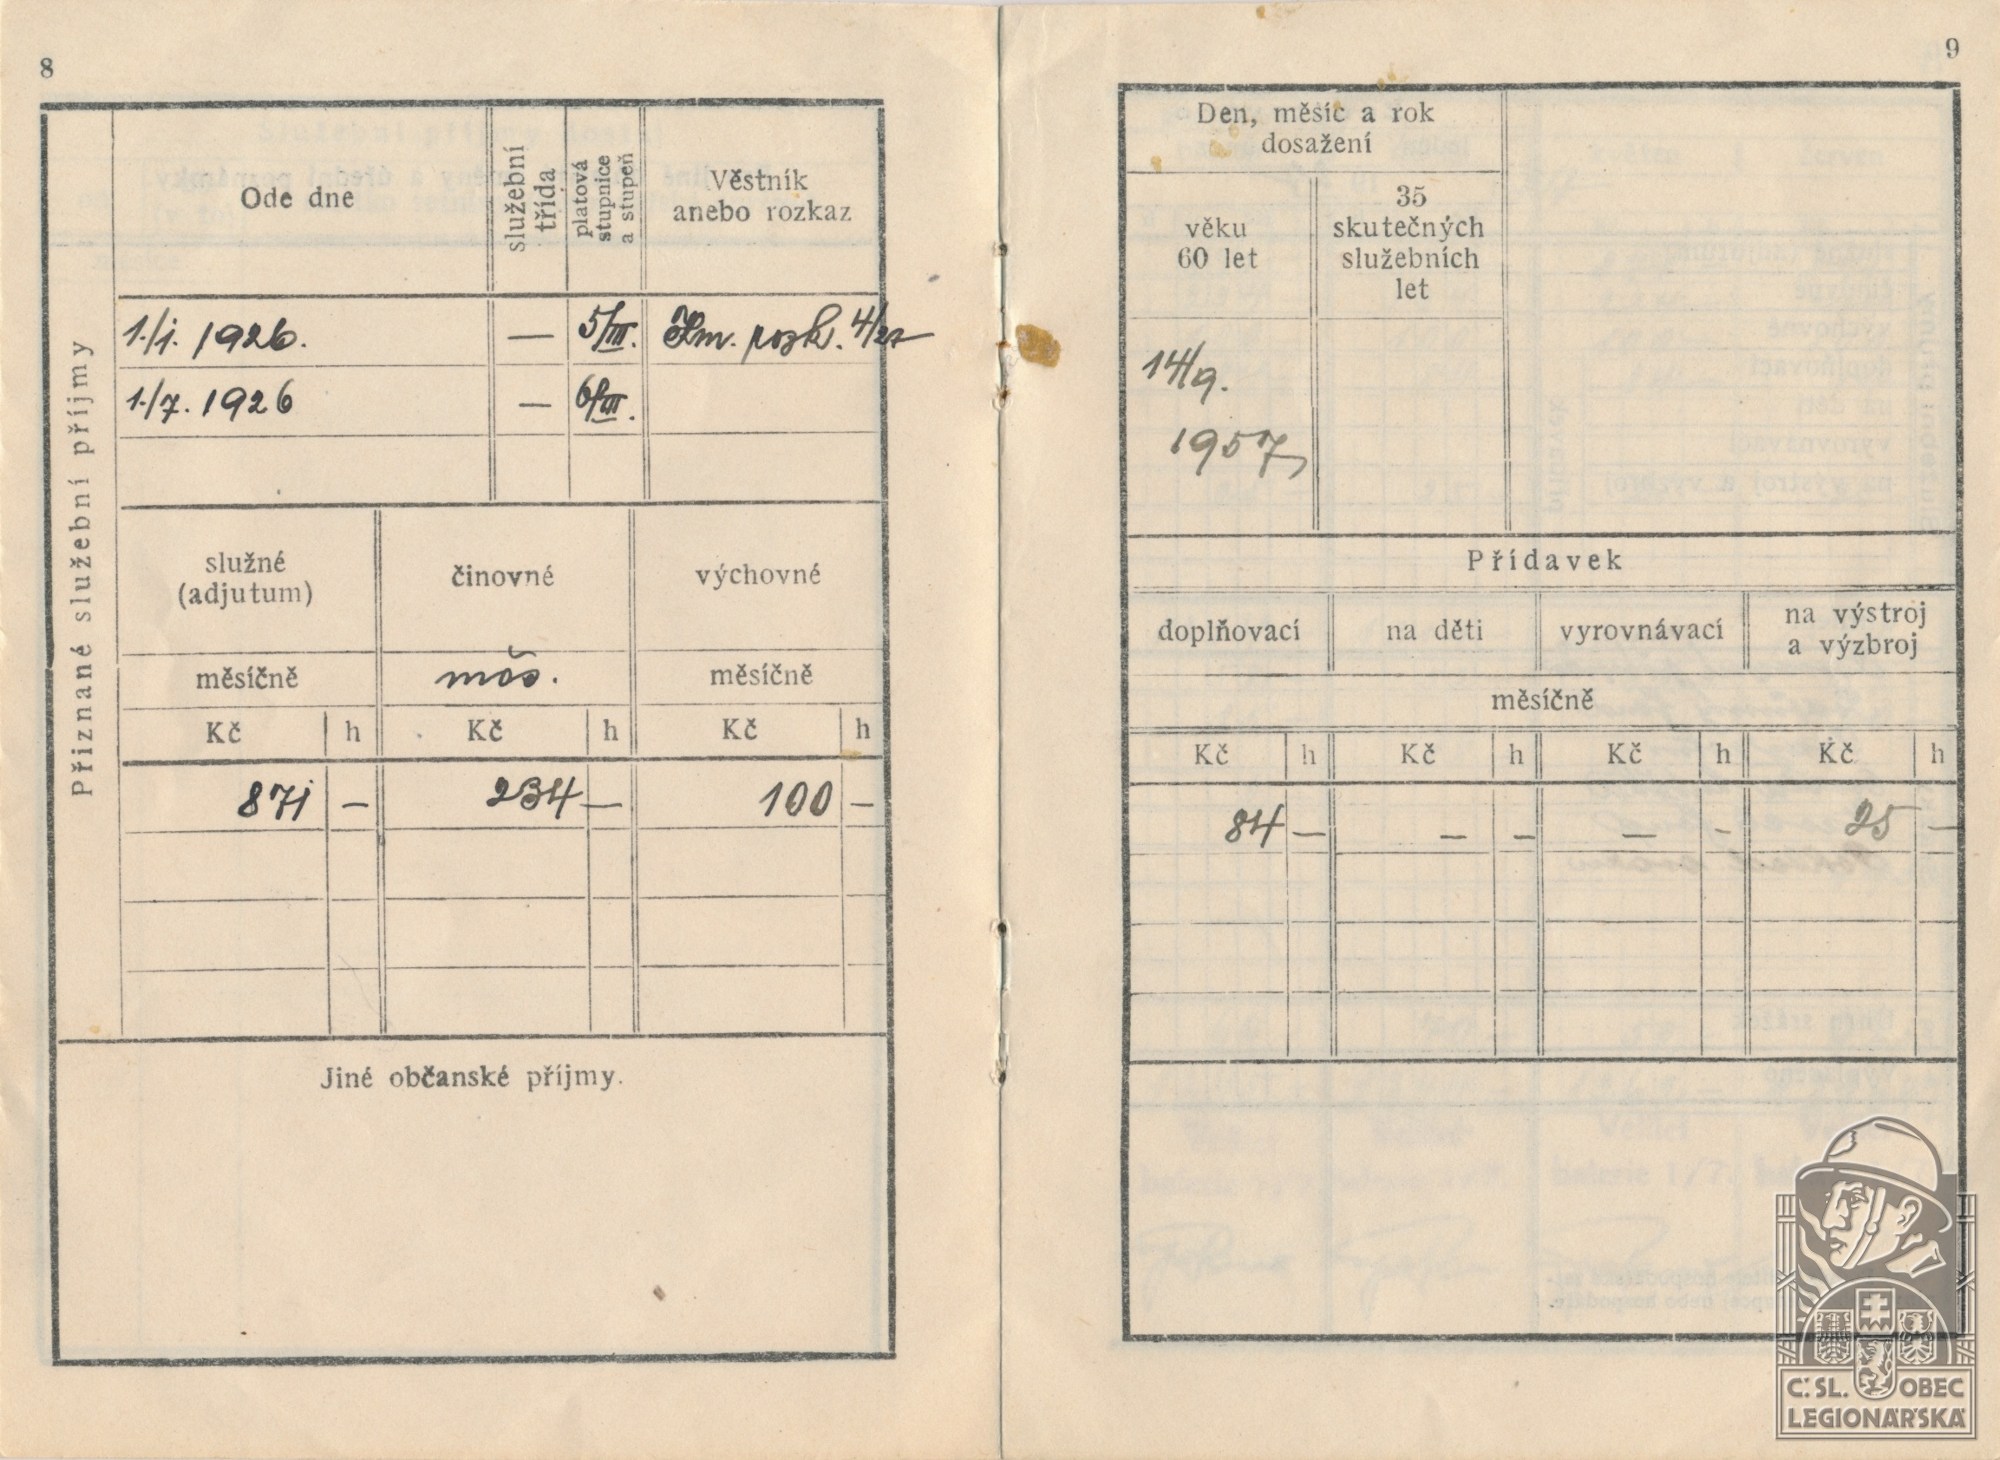 8
Přiznané služební příjmy
Ode dne
služební
třída
platová
stupnice
a stupeň
Věstník
anebo rozkaz
1./1. 1926. — 5/III. rozk. 4/27
1./7. 1926 — 6/III.
služné
(adjutum)
činovné
výchovné
měsíčně
měs.
měsíčně
Kč h Kč h Kč h
871 — 234 — 100 —
Jiné občanské příjmy.
9
Den, měsíc a rok
dosažení
věku
60 let
35
skutečných
služebních
let
14/9.
1957
Přídavek
doplňovací
na děti
vyrovnávací
na výstroj
a výzbroj
měsíčně
Kč h Kč h Kč h Kč h
84 — — — — — 25 —
Č. SL. OBEC
LEGIONÁŘSKÁ